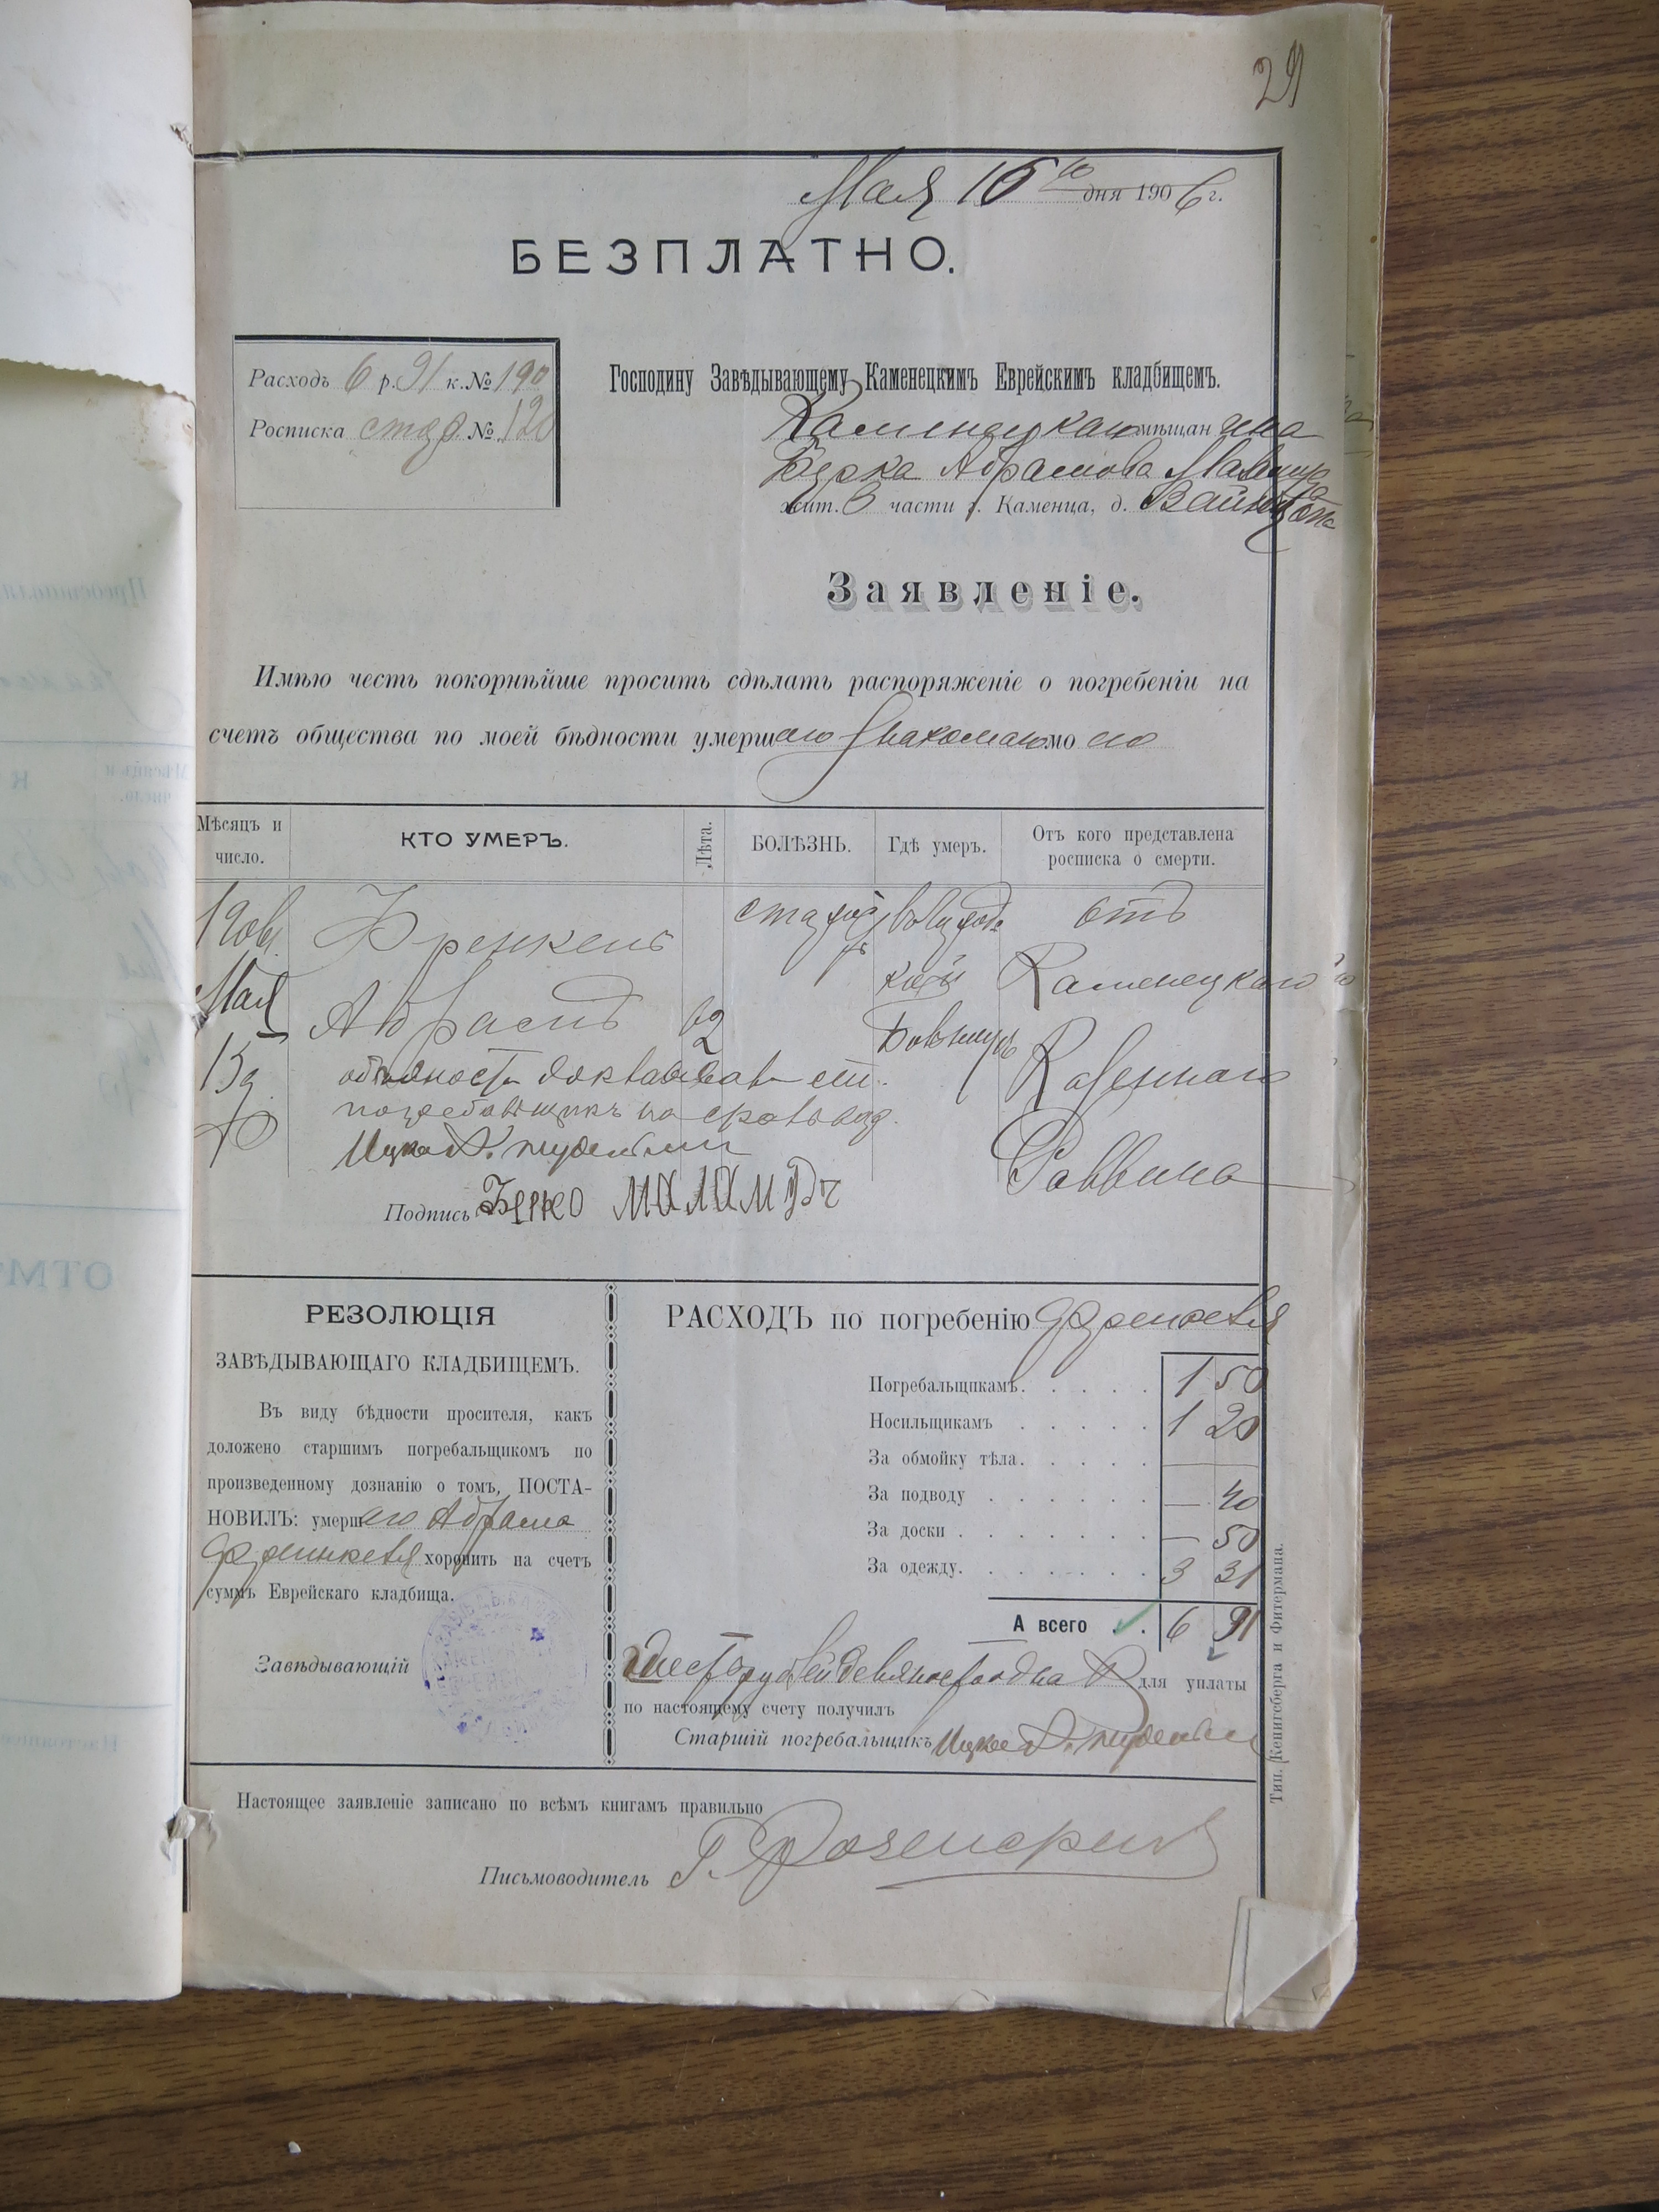 29
Мая 16го дня 1906 г.
БЕЗПЛАТНО.
Расходъ 6 р. 91 к. № 190
Росписка стар. № 120
Господину Завѣдывающему Каменецкимъ Еврейскимъ кладбищемъ.
Каменецкаго мѣщанина
Берка Абрамова
жит. части г. Каменца, д.
Заявленіе.
Имѣю честь покорнѣйше просить сдѣлать распоряженіе о погребеніи на
счетъ общества по моей бѣдности умершаго знакомаго моего
Мѣсяцъ и число.
КТО УМЕРЪ.
Лѣта.
БОЛѢЗНЬ.
Гдѣ умеръ.
Отъ кого представлена росписка о смерти.
1906г. Френкель отъ
Мая Абрамъ 62 Каменецкаго
15 Казеннаго
Раввина
Подпись Берко
РЕЗОЛЮЦІЯ
ЗАВѢДЫВАЮЩАГО КЛАДБИЩЕМЪ.
Въ виду бѣдности просителя, какъ
доложено старшимъ погребальщикомъ по
произведенному дознанію о томъ, ПОСТА-
НОВИЛЪ: умершаго Абрама
Френкеля хоронить на счетъ
суммъ Еврейскаго кладбища.
Завѣдывающій
РАСХОДЪ по погребенію Френкеля
Погребальщикамъ. . . . . 1 50
Носильщикамъ . . . . . 1 20
За обмойку тѣла. . . . .
За подводу . . . . . . — 40
За доски . . . . . . . — 50
За одежду. . . . . . . 3 31
А всего . . 6 91
Шесть рублей девяносто одна к для уплаты
по настоящему счету получилъ
Старшій погребальщикъ Ицко
Настоящее заявленіе записано по всѣмъ книгамъ правильно
Письмоводитель Г.
Тип. Кенигсберга и Фитермана.